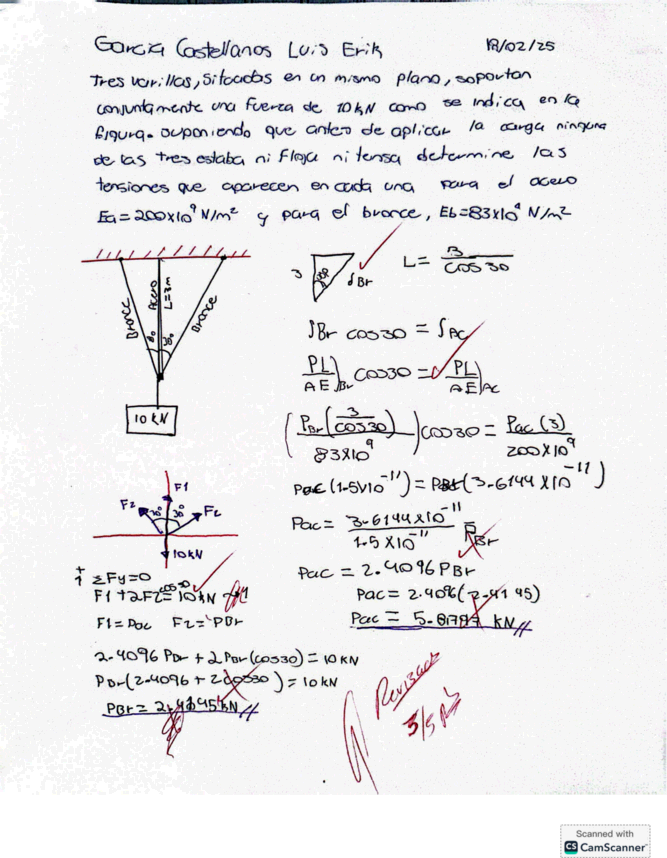 García Castellanos Luis Erik 18/02/25
Tres varillas, situadas en un mismo plano, soportan
conjuntamente una fuerza de 10 kN como se indica en la
figura. suponiendo que antes de aplicar la carga ninguna
de las tres estaba ni floja ni tensa determine las
tensiones que aparecen en cada una para el acero
Ea=200x10⁹ N/m² y para el bronce, Eb=83x10⁹ N/m²
Bronce
Acero
L=3m
Bronce
30 30°
10 kN
3
30°
δBr
L= 3/cos30
δBr cos30 = δAC
PL/AE)Br cos30 = PL/AE)AC
(PBr(3/cos30)/83x10⁹) cos30 = Pac(3)/200x10⁹
Pac (1.5x10⁻¹¹) = PBr(3.6144x10⁻¹¹)
Pac = 3.6144x10⁻¹¹/1.5x10⁻¹¹ PBr
Pac = 2.4096 PBr
Pac = 2.4096(2.4145)
Pac = kN
F1
F2 30° 30° F2
10kN
+↑ ΣFy=0
F1+2F2cos30=10kN
F1=Pac F2=PBr
2.4096 PBr + 2PBr(cos30) = 10 kN
PBr(2.4096 + 2cos30) = 10kN
PBr = kN
Revisado
Scanned with
CS CamScanner